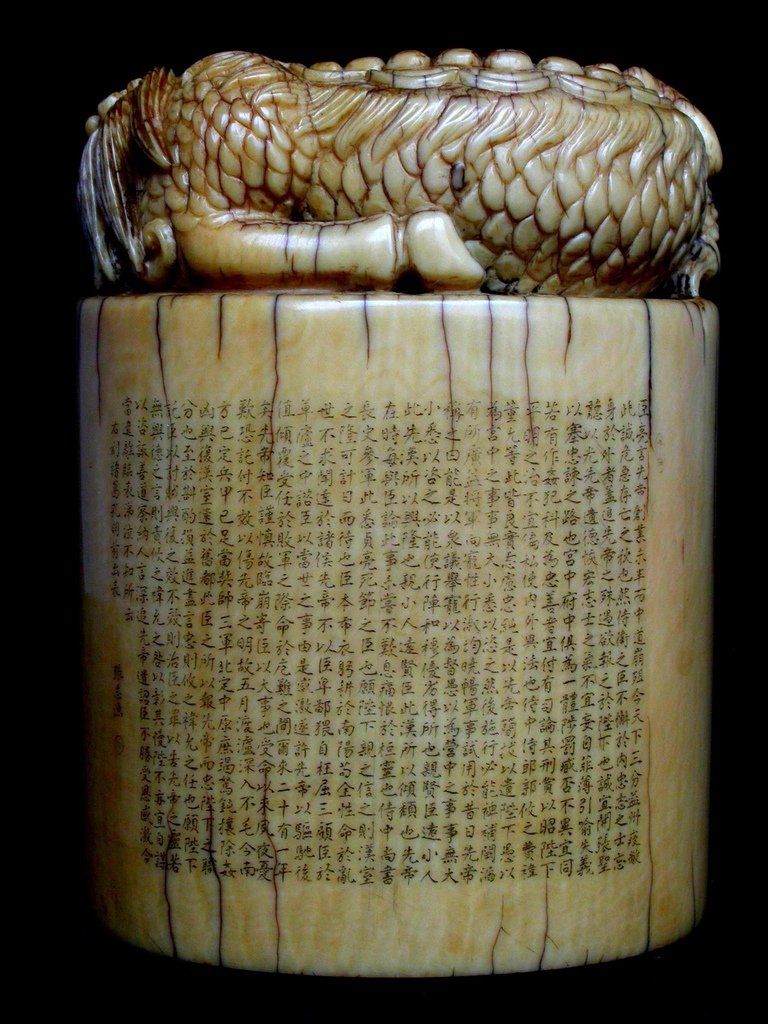 臣亮言先帝創業未半而中道崩殂今天下三分益州疲敝
此誠危急存亡之秋也然侍衛之臣不懈於內忠志之士忘
身於外者蓋追先帝之殊遇欲報之於陛下也誠宜開張聖
聽以光先帝遺德恢宏志士之氣不宜妄自菲薄引喻失義
以塞忠諫之路也宮中府中俱為一體陟罰臧否不異宜同
若有作姦犯科及為忠善者宜付有司論其刑賞以昭陛下
平明之治不宜偏私使內外異法也侍中侍郎郭攸之費禕
董允等此皆良實志慮忠純是以先帝簡拔以遺陛下愚以
為宮中之事事無大小悉以咨之然後施行必能裨補闕漏
有所廣益將軍向寵性行淑均曉暢軍事試用於昔日先帝
稱之曰能是以眾議舉寵以為督愚以為營中之事事無大
小悉以咨之必能使行陣和穆優劣得所也親賢臣遠小人
此先漢所以興隆也親小人遠賢臣此漢所以傾頹也先帝
在時每與臣論此事未嘗不歎息痛恨於桓靈也侍中尚書
長史參軍此悉貞亮死節之臣也願陛下親之信之則漢室
之隆可計日而待也臣本布衣躬耕於南陽苟全性命於亂
世不求聞達於諸侯先帝不以臣卑鄙猥自枉屈三顧臣於
草廬之中諮臣以當世之事由是感激遂許先帝以驅馳後
值傾覆受任於敗軍之際命於危難之間爾來二十有一年
矣先帝知臣謹慎故臨崩寄臣以大事也受命以來夙夜憂
歎恐託付不效以傷先帝之明故五月渡瀘深入不毛今南
方已定兵甲已足當獎帥三軍北定中原庶竭駑鈍攘除姦
凶興復漢室還於舊都此臣之所以報先帝而忠陛下之職
分也至於斟酌損益進盡言忠則攸之禕允之任也願陛下
託臣以討賊興復之效不效則治臣之罪以告先帝之靈若
無興德之言則責攸之禕允之咎以彰其慢陛下亦宜自謀
以咨諏善道察納人言深追先帝遺詔臣不勝受恩感激今
當遠離臨表涕泣不知所云
右刻諸葛孔明前出表